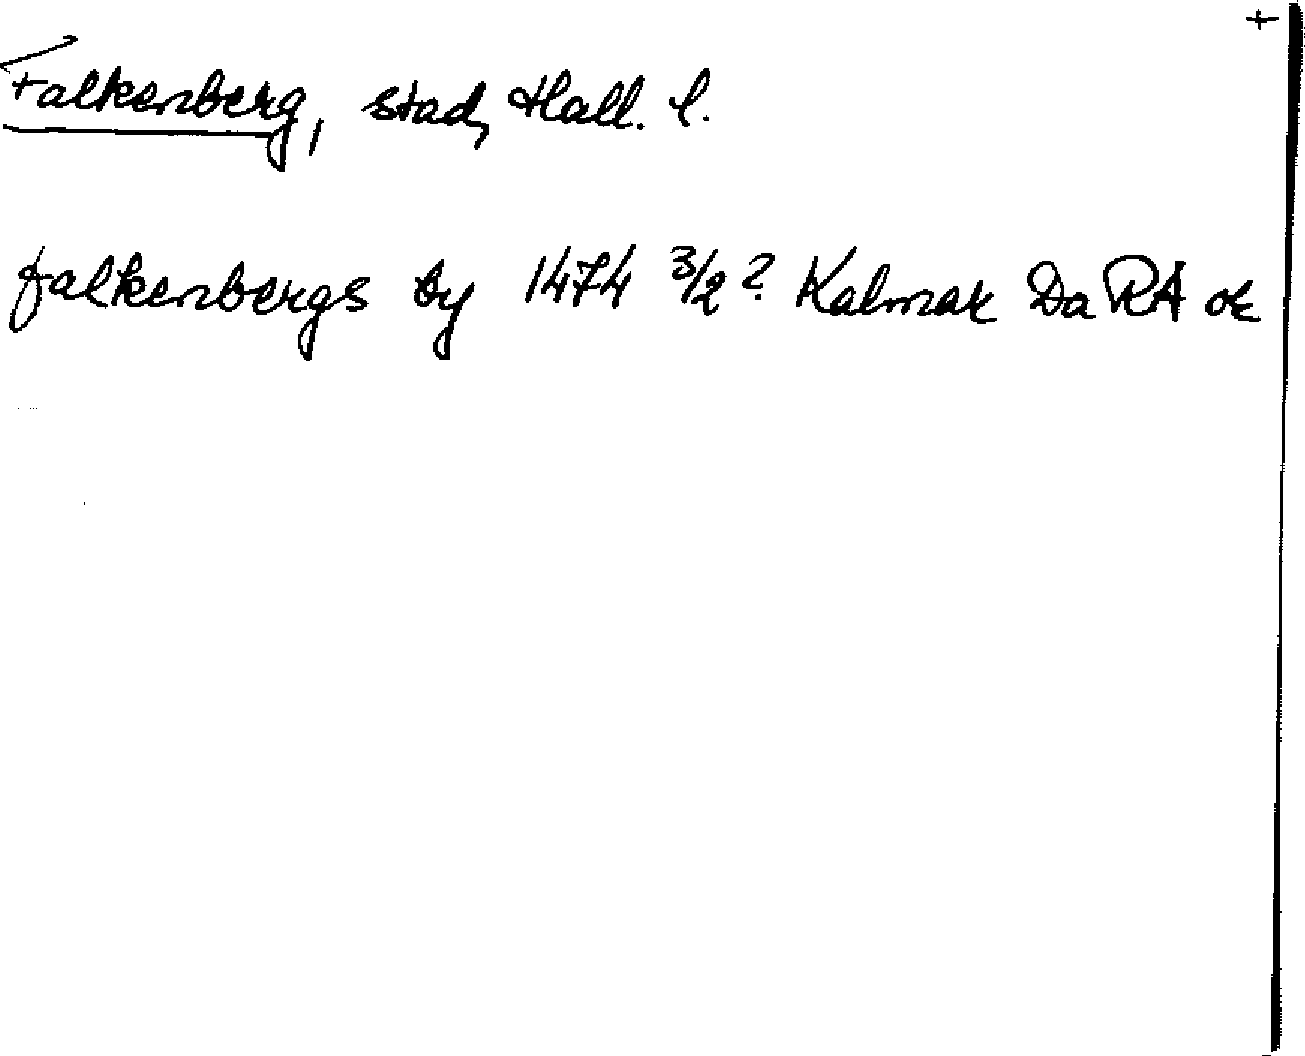 +
Falkenberg, stad, Hall. l.
falkenbergs by 1474 3/2? Kalmar Da RA or